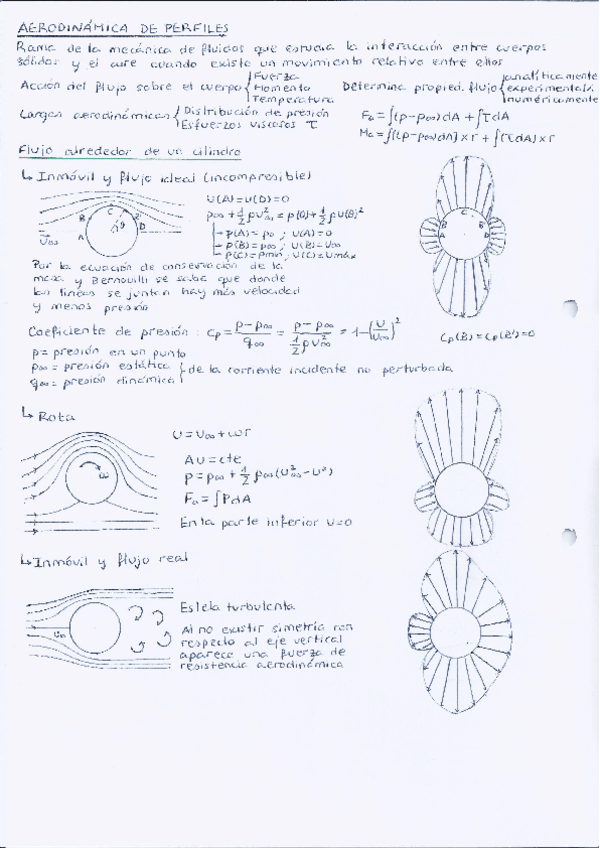 AERODINÁMICA DE PERFILES
Rama de la mecánica de fluidos que estudia la interacción entre cuerpos
sólidos y el aire cuando existe un movimiento relativo entre ellos
Acción del flujo sobre el cuerpo { Fuerza Momento Temperatura
Determina propied. flujo { analíticamente experimental. numéricamente
Cargas aerodinámicas { Distribución de presión Esfuerzos viscosos τ
Fa = ∫(p-p∞)dA + ∫τdA
Ma = ∫(p-p∞)dA) x r + ∫(τdA) x r
Flujo alrededor de un cilindro
↳ Inmóvil y flujo ideal (incompresible)
U(A) = U(D) = 0
p∞ + 1/2 ρU∞² = p(θ) + 1/2 ρU(θ)²
p(A) = p0 ; U(A) = 0
p(B) = p∞ ; U(B) = U∞
p(C) = pmin ; U(C) = Umáx
A B C B' D θ
U∞
B C B' A D
Por la ecuación de conservación de la
masa y Bernouilli se sabe que donde
las líneas se juntan hay más velocidad
y menos presión
Coeficiente de presión : Cp = (p-p∞)/q∞ = (p-p∞)/(1/2 ρU∞²) = 1-(U/U∞)²
Cp(B) = Cp(B') = 0
p = presión en un punto
p∞ = presión estática
q∞ = presión dinámica } de la corriente incidente no perturbada
↳ Rota
U = U∞ + ωr
AU = cte
p = p∞ + 1/2 ρ∞(U∞² - U²)
Fa = ∫PdA
En la parte inferior U=0
ω
↳ Inmóvil y flujo real
U∞
Estela turbulenta
Al no existir simetría con
respecto al eje vertical
aparece una fuerza de
resistencia aerodinámica